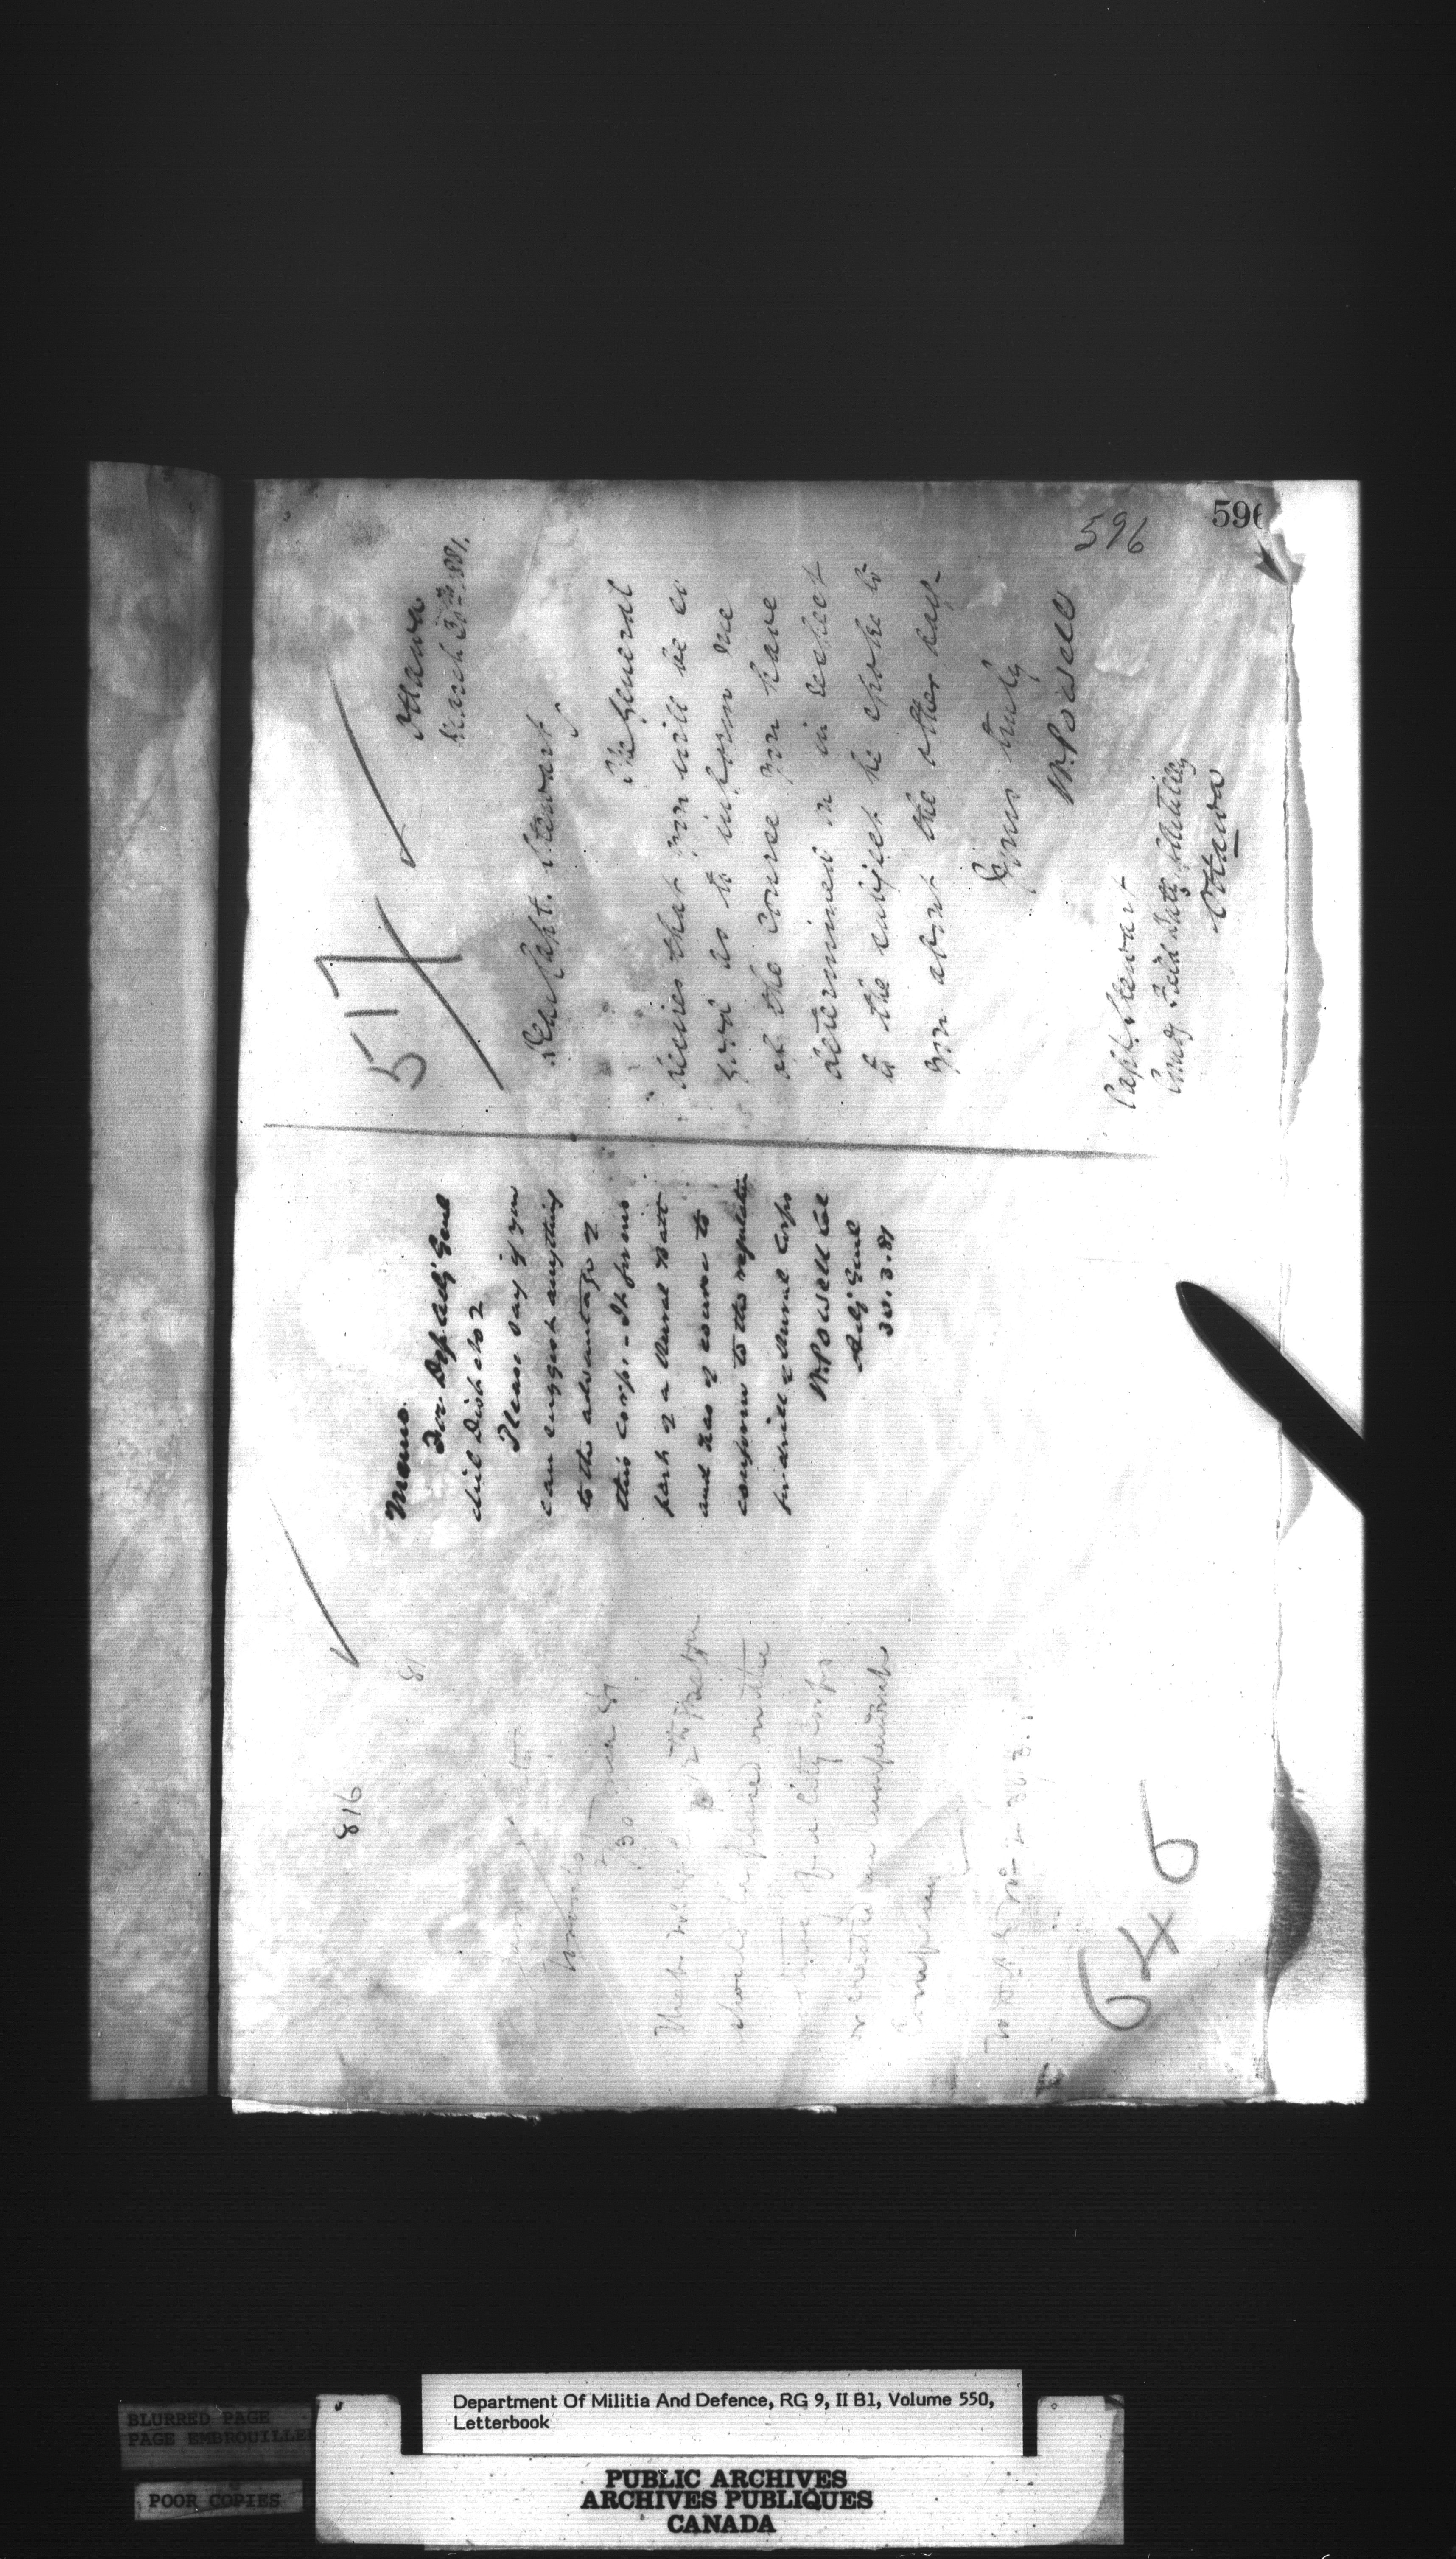 596
596
517
Ottawa
March 30th 1881.
Capt. Stewart
The General
desires that you will be so
good as to inform me
of the course you have
determined in respect
to the subject he spoke to
you about the other day-
Yours truly
W Powell
Capt. Stewart
Comdg Field Baty Artillery
Ottawa
Memo.
For Dep Adj Genl
Mil Dist No 2
Please say if you
can suggest anything
to the advantage of
this Corps - It forms
part of a Rural Batt
and has of course to
conform to the regulations
for drill of Rural Corps
W Powell Col
Adj Genl
30.3.81
816
81
30 81
That 12th Battn
should be placed on the
of a City Corps
or created an independent
Company
646
Department Of Militia And Defence, RG 9, II B1, Volume 550,
Letterbook
BLURRED PAGE
PAGE EMBROUILLEE
POOR COPIES
PUBLIC ARCHIVES
ARCHIVES PUBLIQUES
CANADA